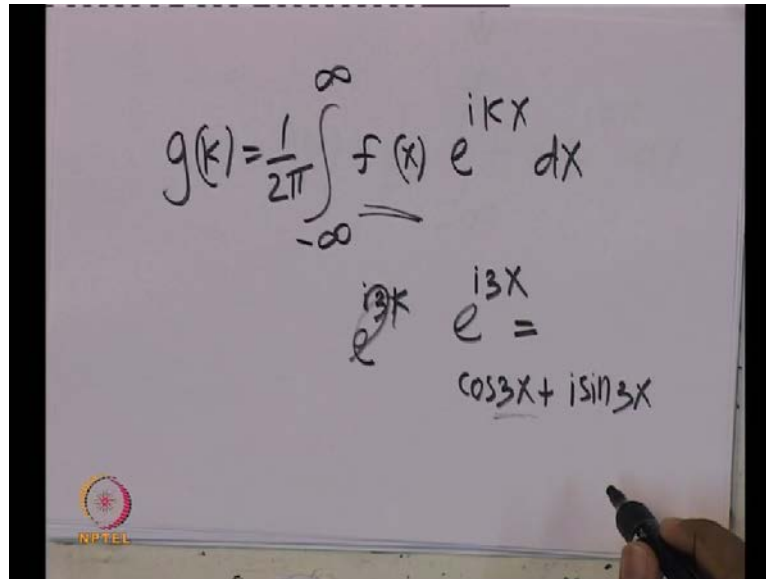 g(k) = 1/2π ∫_{-∞}^{∞} f(x) e^{ikx} dx
e^{i3k} e^{i3x} =
cos3x + i sin3x
NPTEL